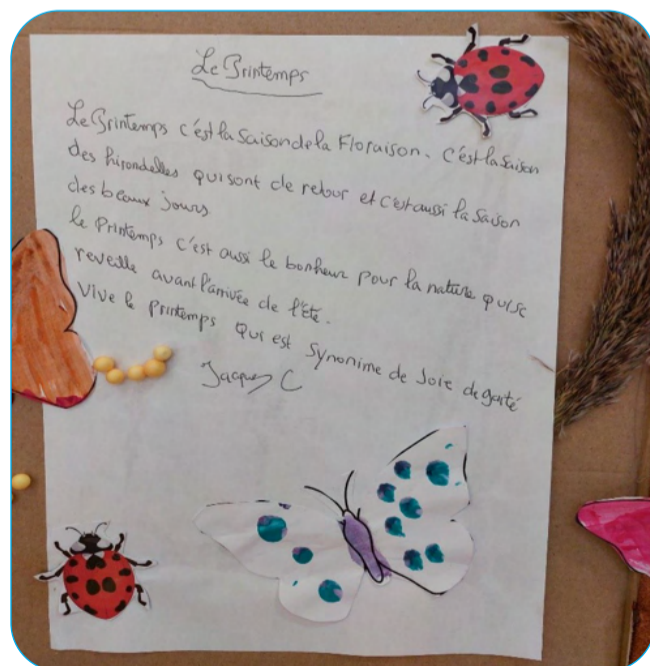 Le Printemps
Le Printemps c'est la saison de la Floraison. C'est la saison
des hirondelles qui sont de retour et c'est aussi la saison
des beaux jours
le Printemps c'est aussi le bonheur pour la nature qui se
reveille avant l'arrivée de l'été.
Vive le printemps qui est synonime de Joie de gaité
Jacques C